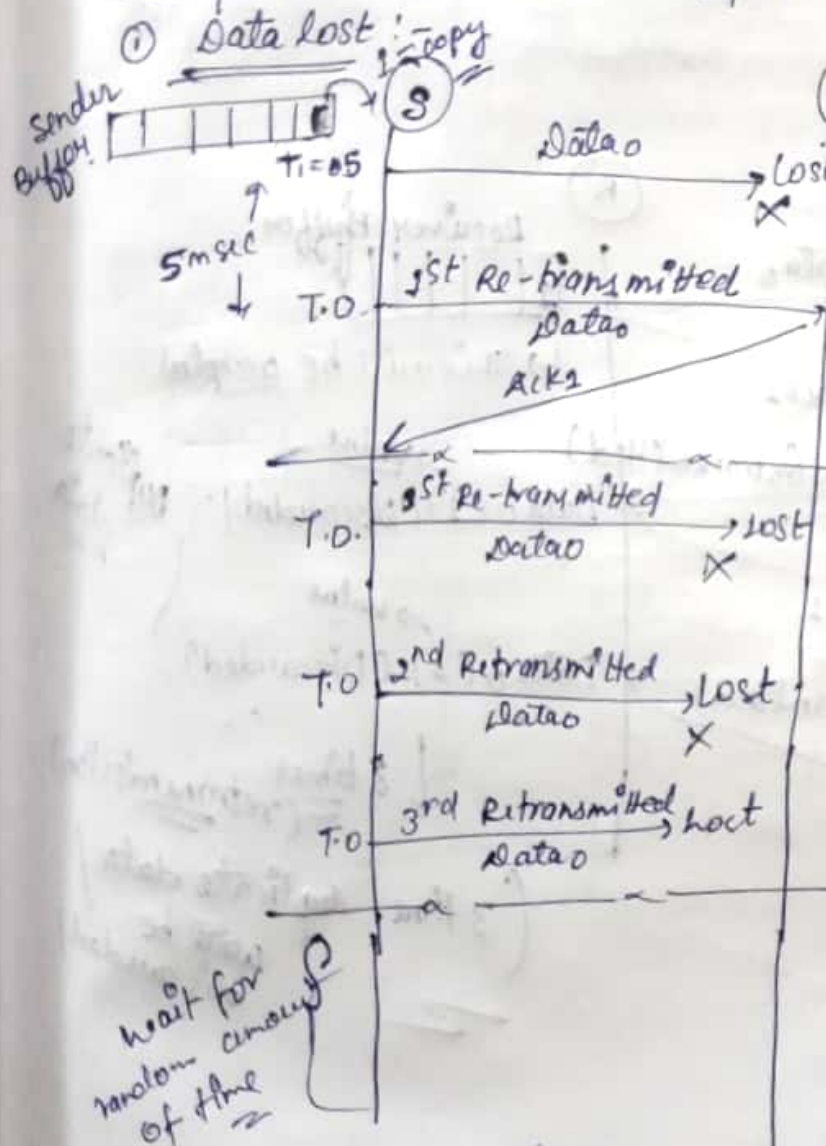 ① Data lost :-
1-copy
Sender
Buffer.
S
T1=05
Data 0
Lost
5msec
T.O
1st Re-transmitted
Data 0
Ack1
T.O.
1st Re-transmitted
Lost
Data 0
T.O
2nd Retransmitted
Lost
Data 0
T.O
3rd Retransmitted
Loct
Data 0
Wait for
random amount
of time